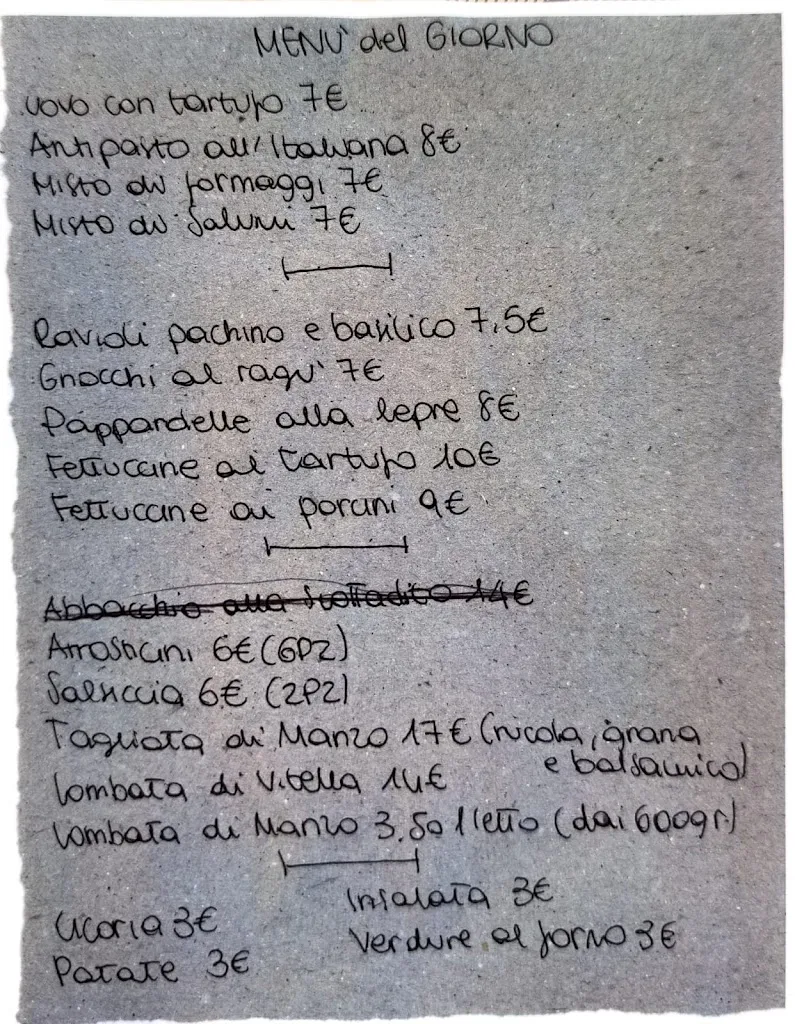 MENU' del GIORNO
uovo con tartufo 7€
Antipasto all'Italiana 8€
Misto di formaggi 7€
Misto di Salumi 7€
Ravioli pachino e basilico 7,5€
Gnocchi al ragu' 7€
Pappardelle alla lepre 8€
Fettuccine al tartufo 10€
Fettuccine ai porcini 9€
Abbacchio alla Scottadito 14€
Arrosticini 6€ (6PZ)
Salsiccia 6€ (2PZ)
Tagliata di Manzo 17€ (rucola, grana
e balsamico)
Lombata di Vitella 14€
Lombata di Manzo 3,50 l'etto (dai 600gr)
Cicoria 3€
Patate 3€
Insalata 3€
Verdure al forno 3€